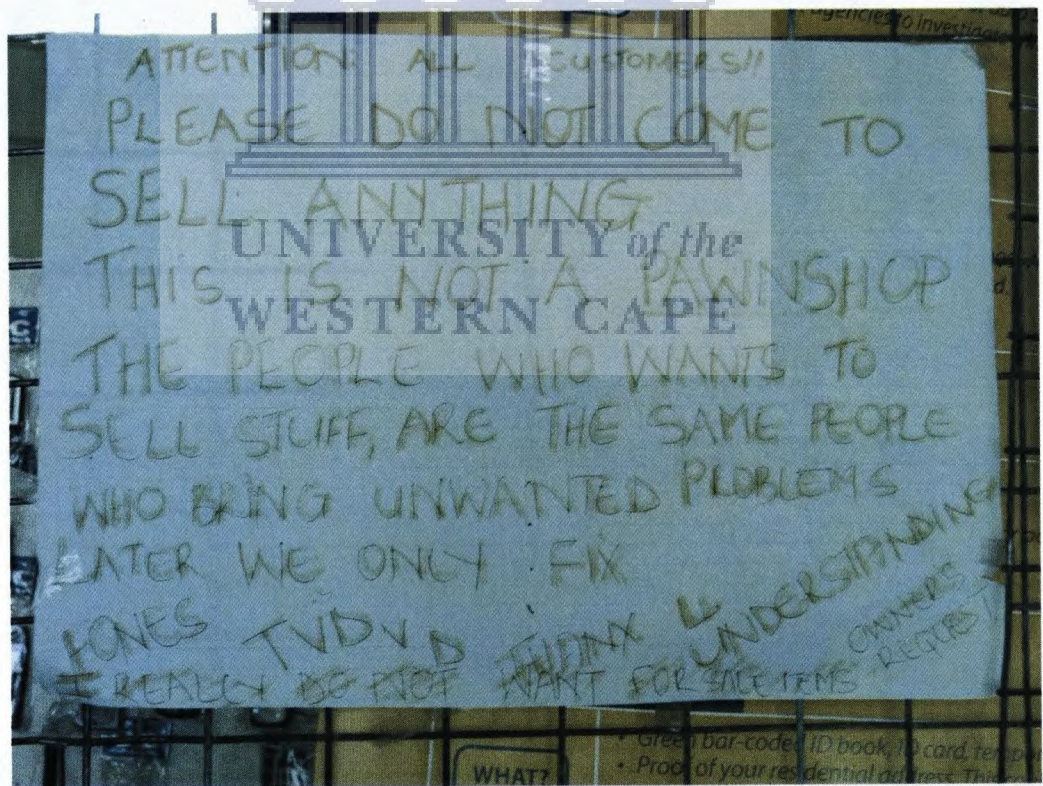 agencies to investiga
ATTENTION: ALL CUSTOMERS!!
PLEASE DO NOT COME TO
SELL ANYTHING
THIS IS NOT A PAWNSHOP
THE PEOPLE WHO WANTS TO
SELL STUFF, ARE THE SAME PEOPLE
WHO BRING UNWANTED PROBLEMS
LATER WE ONLY FIX
FONES TV DVD THANX 4 UNDERSTANDING
I REALLY DO NOT WANT FOR SALE ITEMS
OWNERS
UNIVERSITY of the
WESTERN CAPE
• Green bar-coded ID book, ID card, tempor
WHAT?
• Proof of your residential address. This